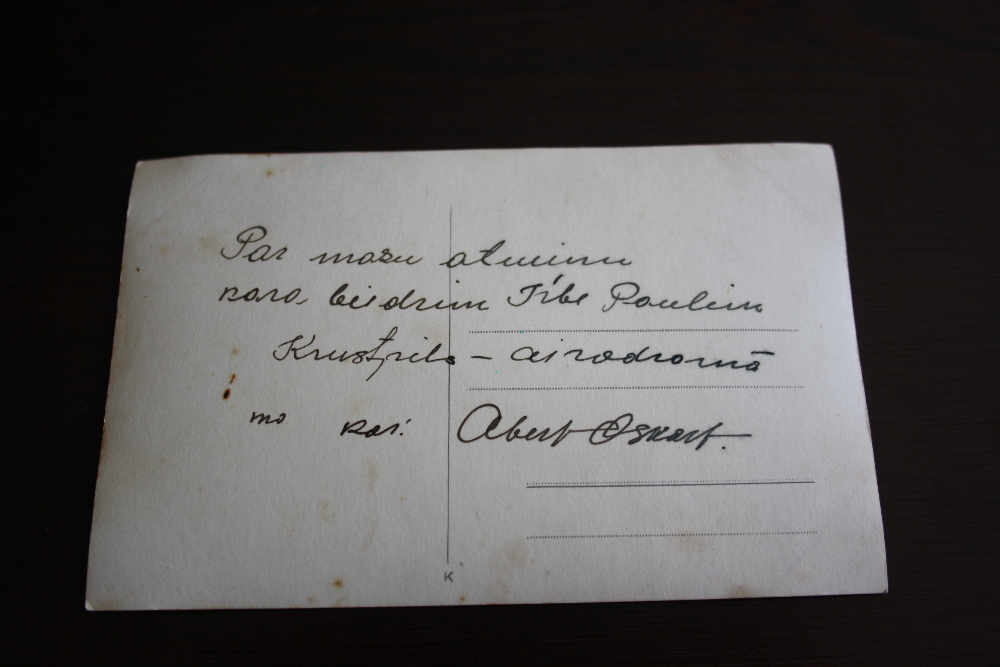 Par mazu atminu
kara biedrim Irbe Paulim
Krustpils - airodromā
no kar. Abert Oskart.
K